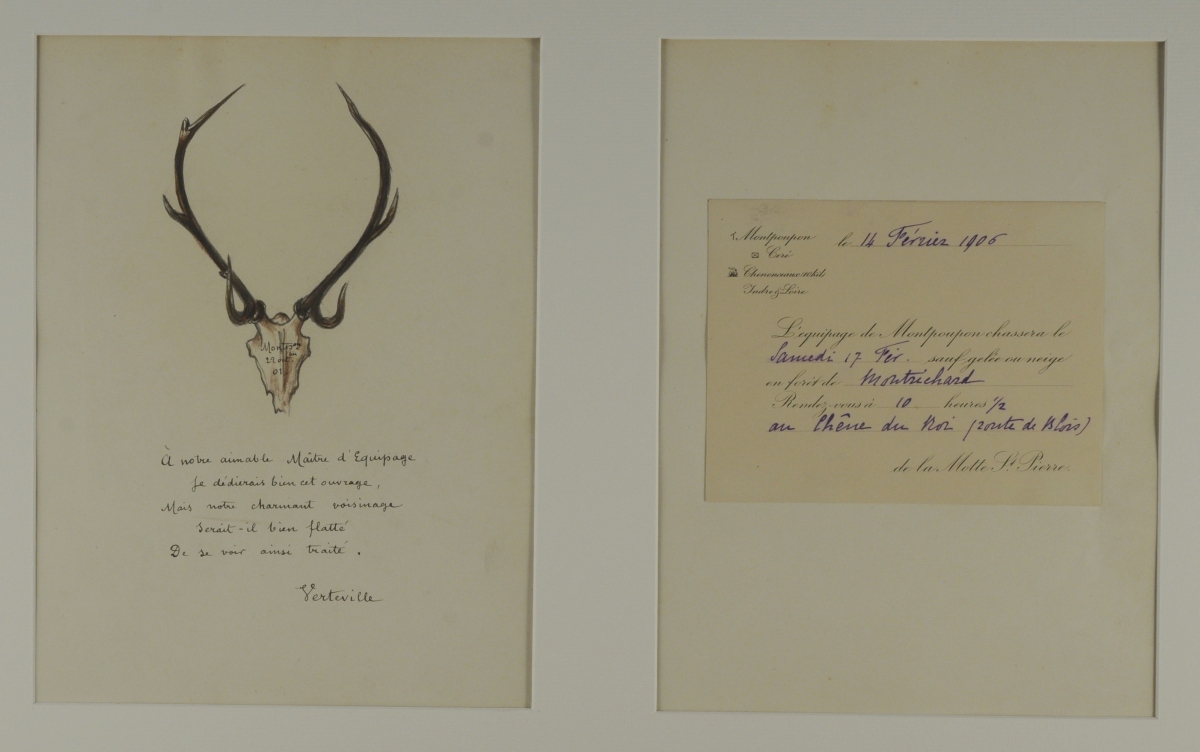 Montp
22 oct
01
À notre aimable Maître d'Equipage
Je dédierais bien cet ouvrage,
Mais notre charmant voisinage
Serait-il bien flatté
De se voir ainsi traité.
Verteville
Montpoupon
Céré
Chenonceaux 10 kil.
Indre & Loire
le 14 Février 1906
L'équipage de Montpoupon chassera le
Samedi 17 Fév. sauf gelée ou neige
en forêt de Montrichard
Rendez-vous à 10 heures 1/2
au Chêne du Roi (route de Blois)
de la Motte St Pierre.